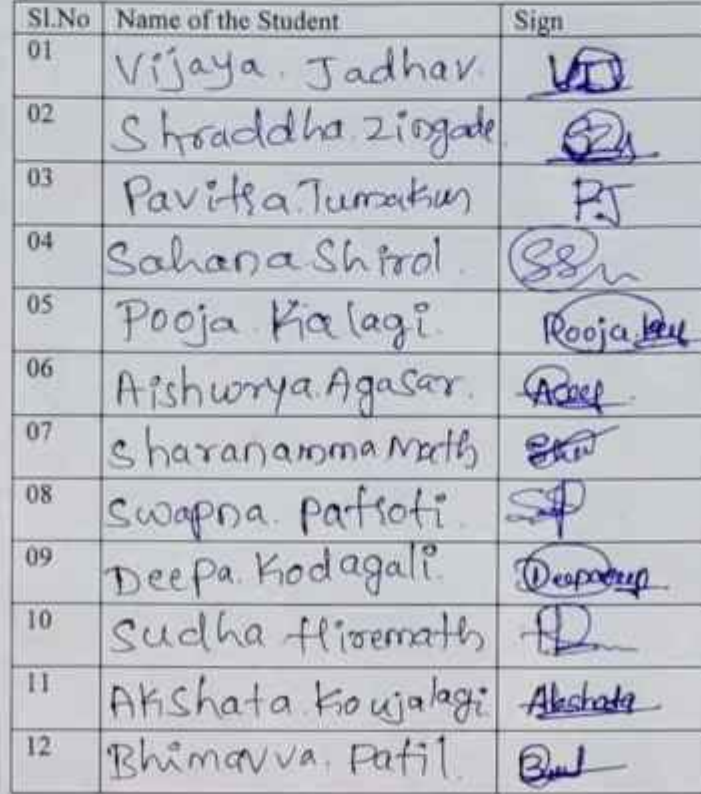 Sl.No Name of the Student Sign
01 Vijaya. Jadhav.
02 Shraddha. Zingade
03 Pavitra. Tumakur PJ
04 Sahana Shirol. SS
05 Pooja. Kalagi. Pooja
06 Aishwrya. Agasar.
07 Sharanamma Math
08 Swapna. Patroti SP
09 Deepa. Kodagali. Deepa
10 Sudha Hiremath
11 Akshata. Koujalagi Akshata
12 Bhimavva. Patil